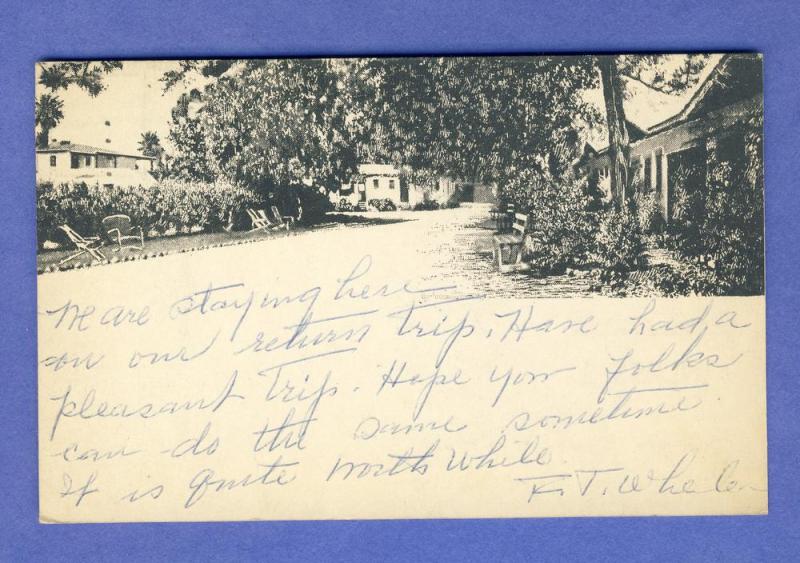 We are staying here
on our return trip. Have had a
pleasant trip. Hope you folks
can do the same sometime.
It is quite worth while.
F. T. Whalen